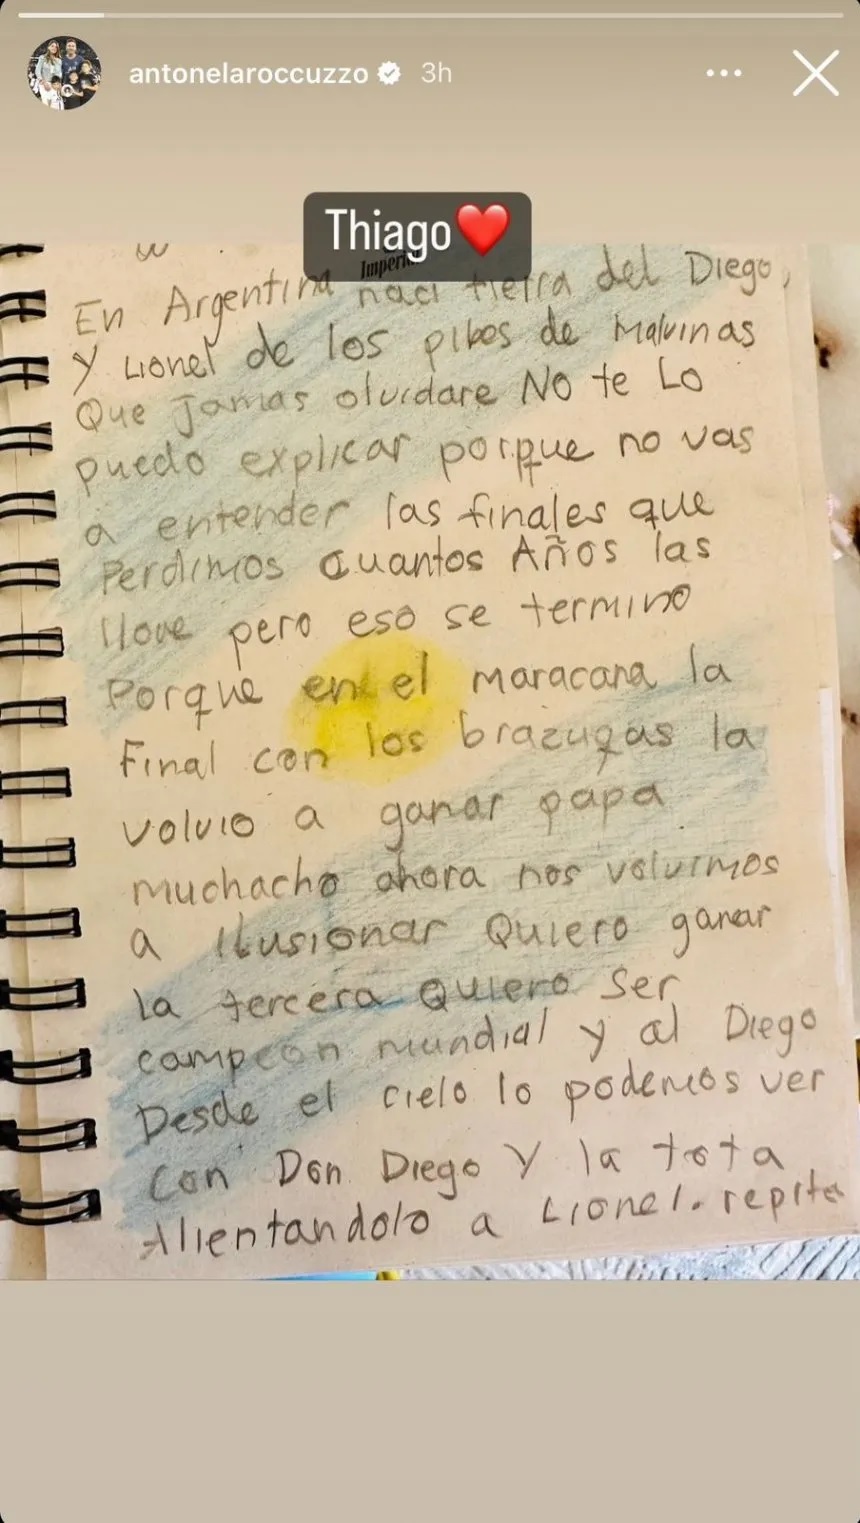 antonelaroccuzzo 3h
Thiago
En Argentina naci tierra del Diego,
y Lionel de los pibes de Malvinas
Que Jamas olvidare NO te Lo
puedo explicar porque no vas
a entender las finales que
Perdimos cuantos Años las
llore pero eso se termino
Porque en el maracana la
Final con los brazugas la
volvio a ganar papa
muchacho ahora nos volvimos
a ilusionar Quiero ganar
la tercera Quiero Ser
campeon mundial y al Diego
Desde el cielo lo podemos ver
Con Don Diego Y la tota
Alientandolo a Lionel. repite